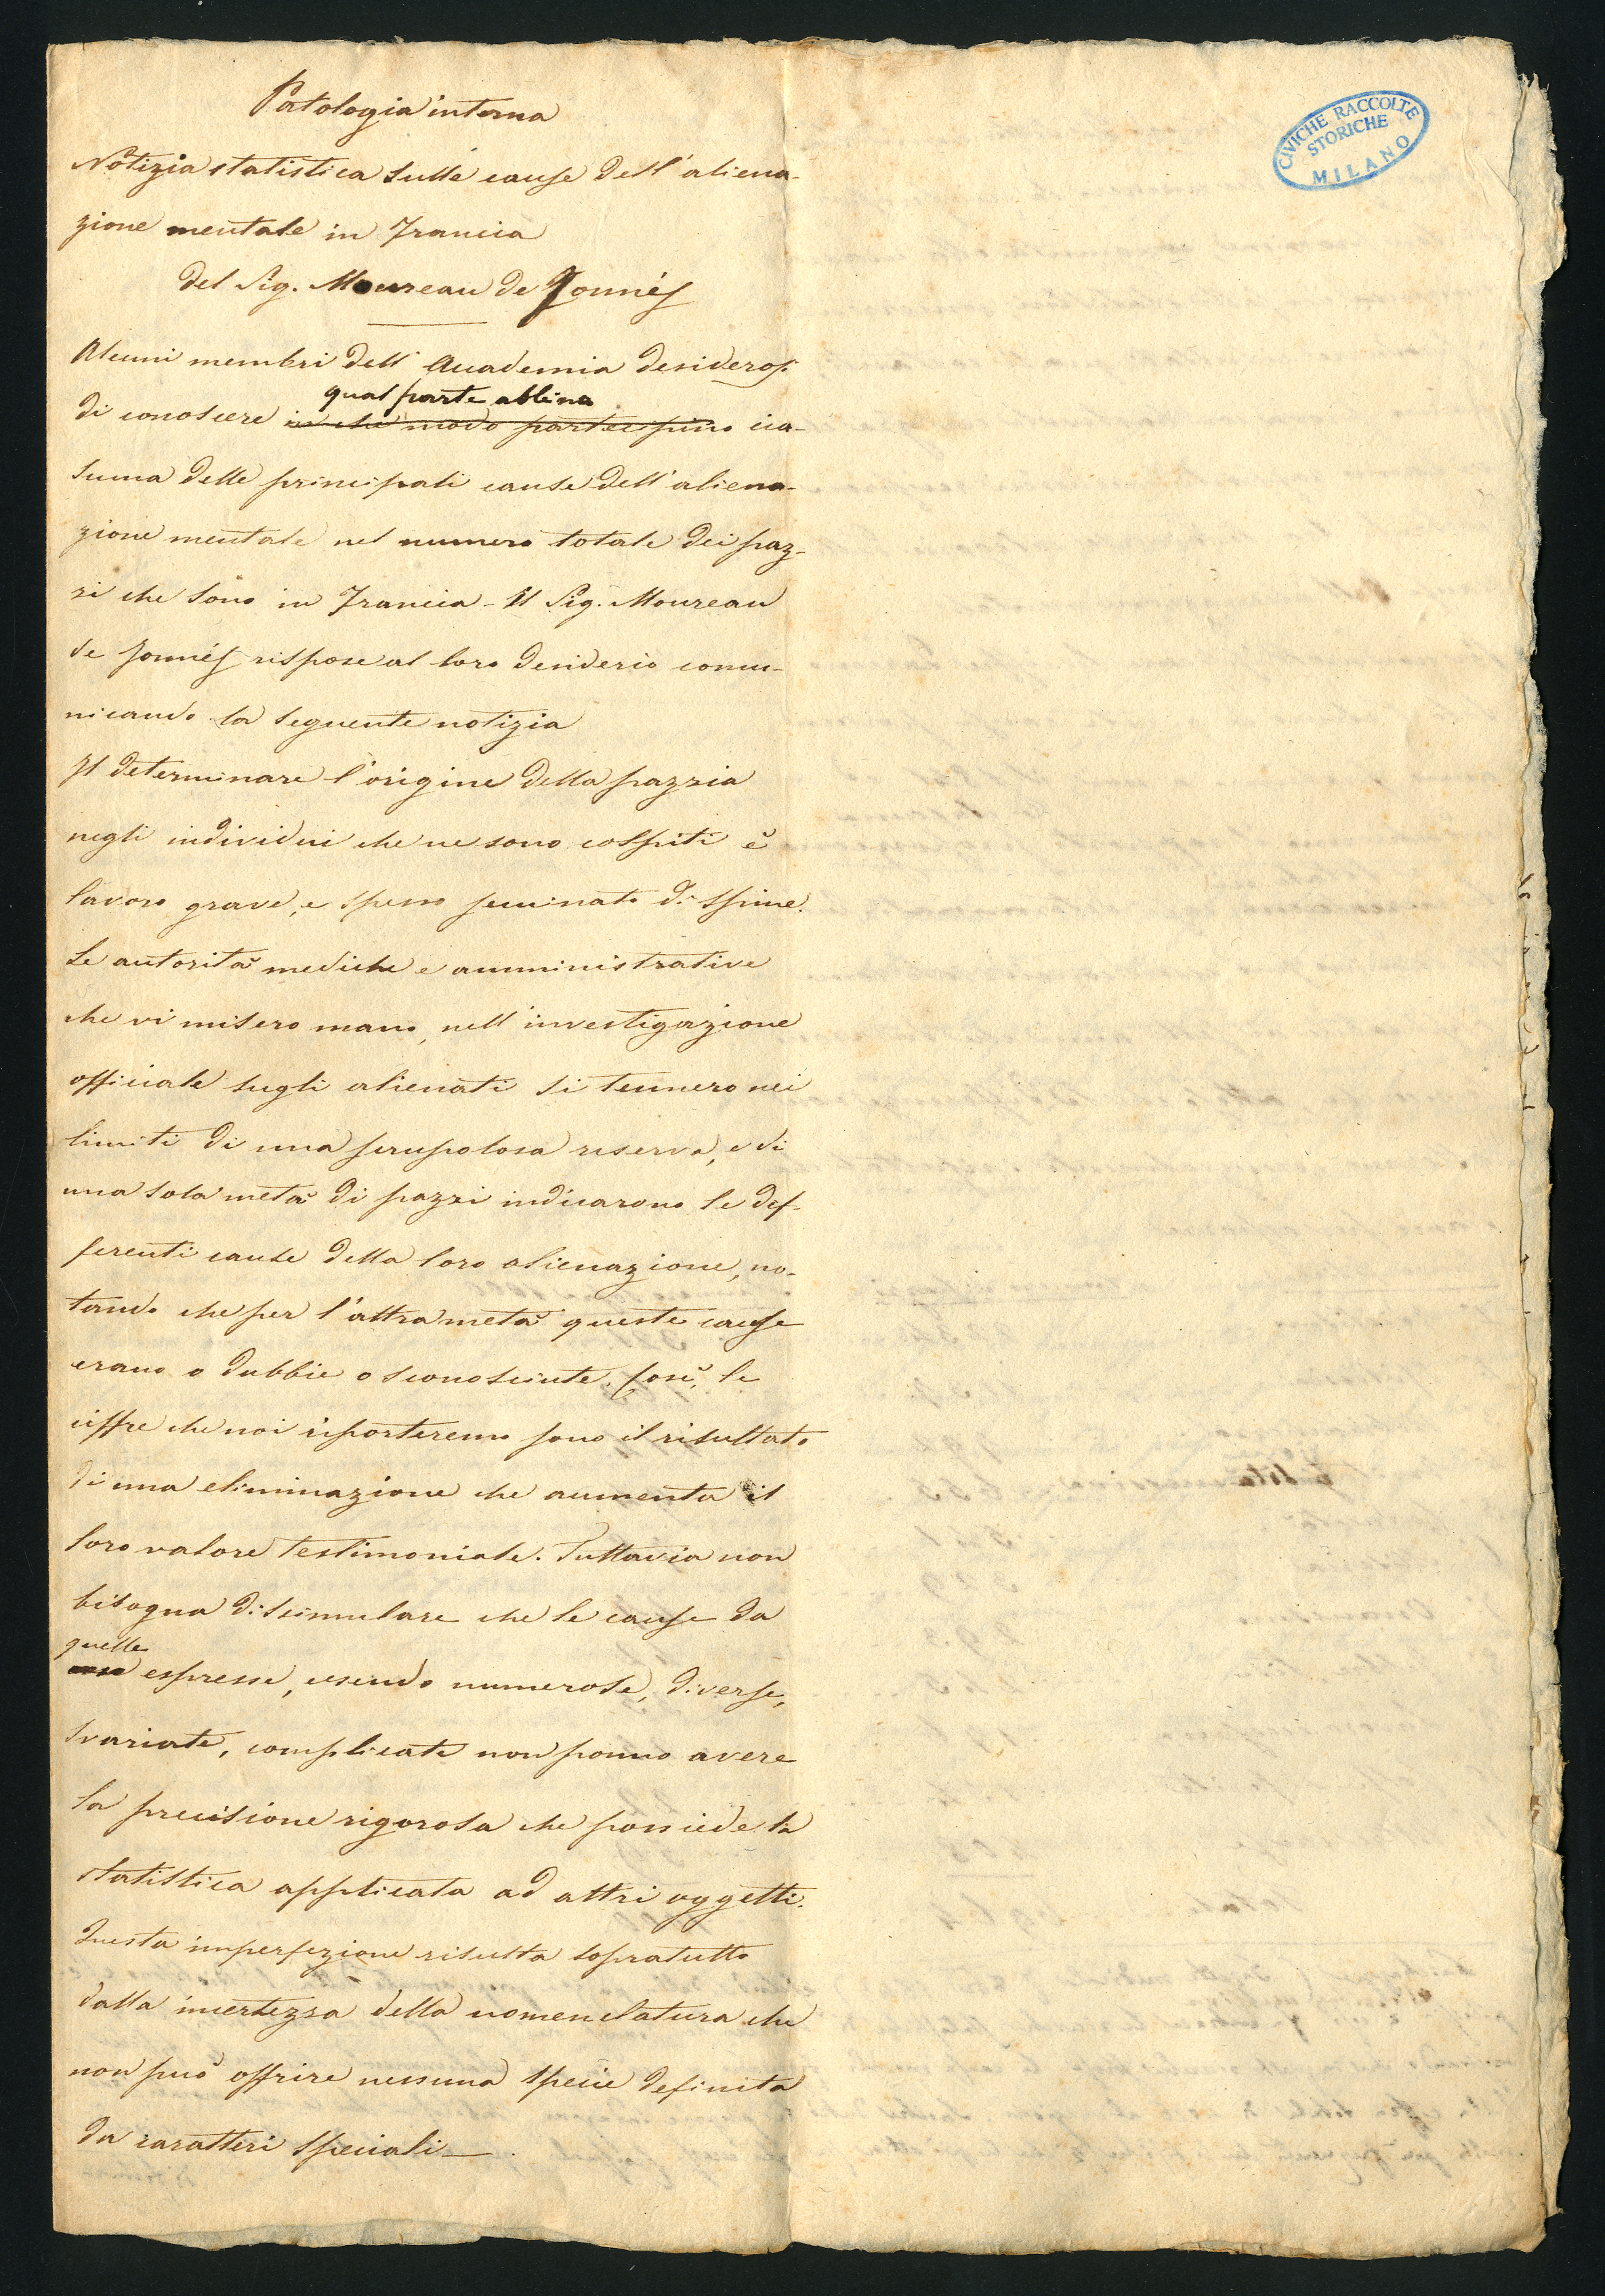 Patologia interna
Notizia statistica sulle cause dell'aliena-
zione mentale in Francia
del Sig. Moureau de Jonnés
Alcuni membri dell'Accademia desiderosi
qual parte abbina
di conoscere in che modo partecipino cia-
suna delle principali cause dell'aliena-
zione mentale nel numero totale dei paz-
zi che sono in Francia - Il Sig. Moureau
de Jonnés rispose al loro desiderio comu-
nicando la seguente notizia
Il determinare l'origine della pazzia
negli individui che ne sono colpiti è
lavoro grave, e spesso seminato di spine.
Le autorità mediche e amministrative
che vi misero mano, nell'investigazione
officiale sugli alienati si tennero nei
limiti di una scrupolosa riserva, e di
una sola metà di pazzi indicarono le def-
ferenti cause della loro alienazione, no-
tando che per l'altra metà queste cause
erano o dubbie o sconosciute. Così, le
ciffre che noi riporteremo sono il risultato
di una eliminazione che aumenta il
loro valore testimoniale. Tuttavia non
bisogna dissimulare che le cause da
quelle
esse espresse, essendo numerose, diverse,
svariate, complicate non ponno avere
la precisione rigorosa che possiede la
statistica applicata ad altri oggetti.
Questa imperfezione risulta sopratutto
dalla incertezza della nomenclatura che
non può offrire nessuna specie definita
da caratteri speciali -
CIVICHE RACCOLTE
STORICHE
MILANO